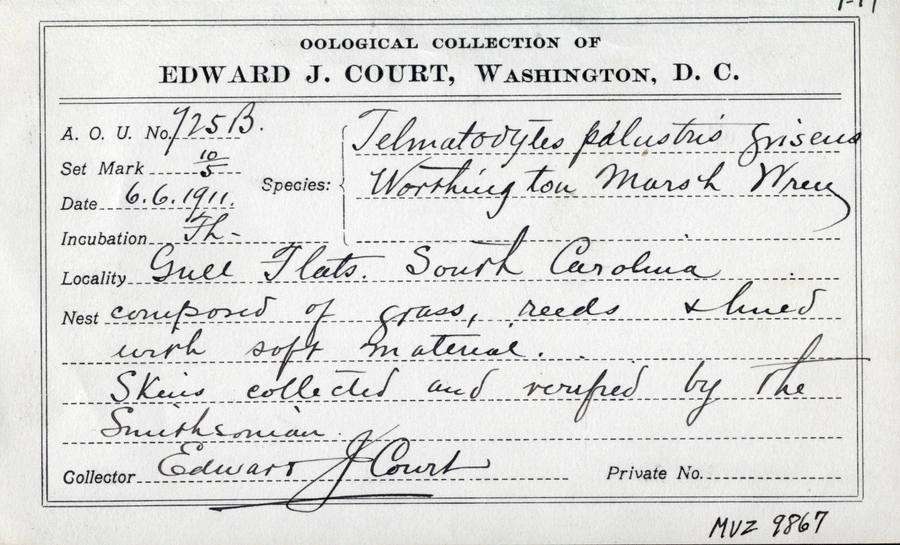 OOLOGICAL COLLECTION OF
EDWARD J. COURT, WASHINGTON, D. C.
A. O. U. No. 725B.
Set Mark 10/5
Date 6.6.1911.
Incubation Fh-
Species: Telmatodytes palustris griseus
Worthington Marsh Wren
Locality Gull Flats. South Carolina
Nest composed of grass, reeds & lined
with soft material.
Skins collected and verified by the
Smithsonian.
Collector Edward J Court
Private No.
MVZ 9867